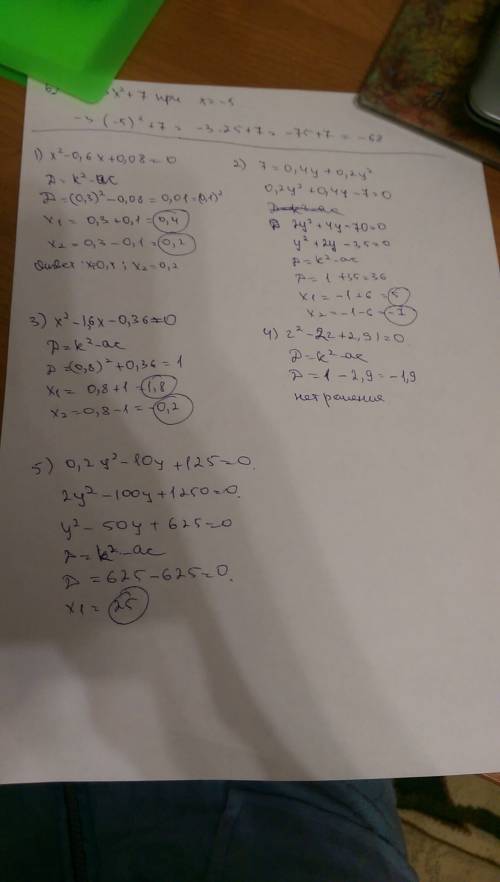 x²+7 при x=-5
-3(-5)²+7 = -3·25+7 = -75+7 = -68
1) x²-0,6x+0,08=0
D=k²-ac
D=(0,3)²-0,08=0,01=(0,1)²
x1 = 0,3+0,1=0,4
x2=0,3-0,1=0,2
Ответ x2=0,2
2) 7=0,4y+0,2y²
0,2y²+0,4y-7=0
D=k²-ac
2y²+4y-70=0
y²+2y-35=0
D=k²-ac
D=1+35=36
x1=-1+6=5
x2=-1-6=-7
3) x²-1,6x-0,36=0
D=k²-ac
D=(0,8)²+0,36=1
x1= 0,8+1=1,8
x2=0,8-1=-0,2
4) z²-2z+2,91=0
D=k²-ac
D=1-2,9=-1,9
нет решения
5) 0,2y²-10y+125=0.
2y²-100y+1250=0.
y²-50y+625=0
D=k²-ac
D=625-625=0.
x1=25